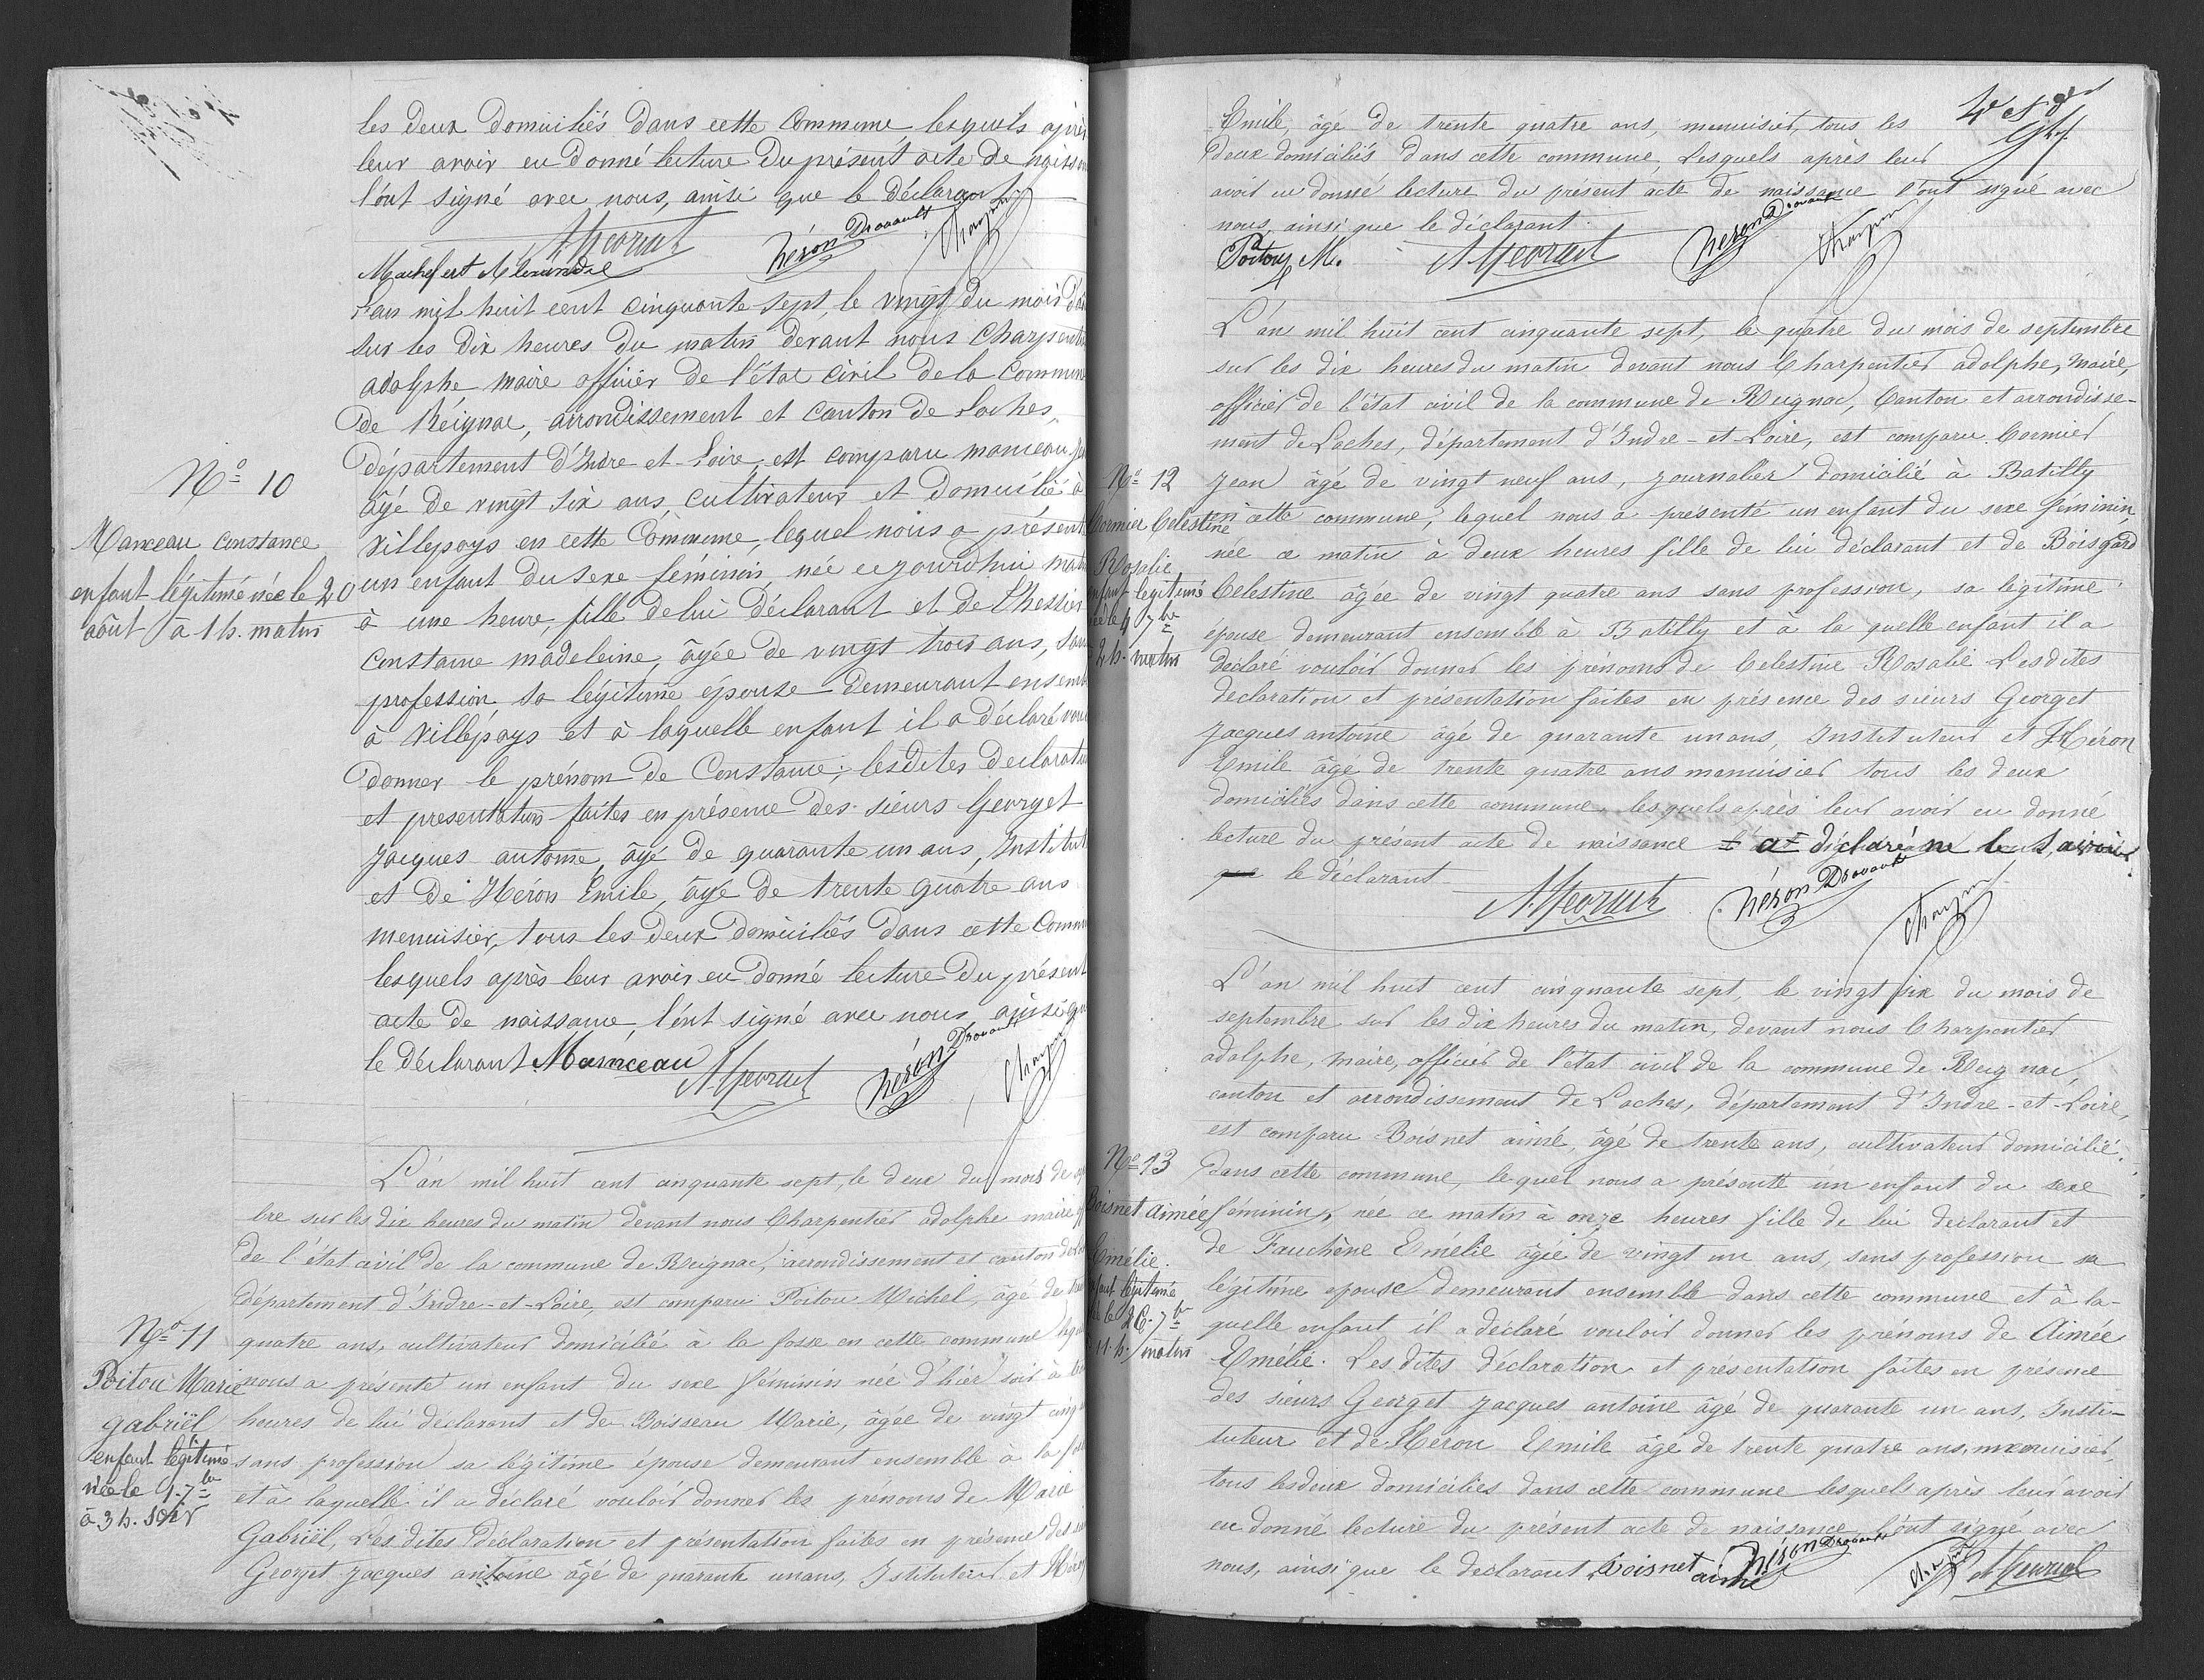 les deux domiciliés dans cette Commune lesquels après
leur avoir eu donné lecture du présent acte de naissan
l'ont signé avec nous, ainsi que le déclarant
Héron Drouault
Machefert Alexandre
L'an mil huit cent cinquante sept, le vingt du mois d'
sur les dix heures du matin devant nous Charpentier
adolphe maire officier de l'état civil de la Commune
de Reignac, arrondissement et canton de Loches,
département d'Indre-et-Loire, est comparu manceau
âgé de vingt six ans, cultivateur et domicilié à
Villepays en cette Commune, lequel nous a présent
N° 10
Manceau Constance
enfant légitime née le 20
août à 1 h. matin
un enfant du sexe féminin, née ce jourd'hui matin
à une heure, fille de lui déclarant et de Chessier
Constance madeleine, âgée de vingt trois ans, sans
profession, sa légitime épouse demeurant ensemb
à Villepays et à laquelle enfant il a déclaré vou
donner le prénom de Constance; lesdites déclaration
et presentation faites en présence des sieurs Georget
Jacques antoine, âgé de quarante un ans, Institut
et de Héron Emile, âgé de trente quatre ans
menuisier, tous les deux domiciliés dans cette Comm
lesquels après leur avoir eu donné lecture du présent
acte de naissance, l'ont signé avec nous, ainsi que
le déclarant Mainceau
Héron Drouault
L'an mil huit cent cinquante sept, le deux du mois de
bre sur les dix heures du matin devant nous Charpentier adolphe maire
de l'état civil de la commune de Reignac, arrondissement et canton de
département d'Indre-et-Loire, est comparu Poitou Michel, âgé de
N° 11
Poitou Marie
gabriël
enfant légitime
née le 1. 7bre
à 3 h. soir
quatre ans, cultivateur domicilié à la fosse en cette commune
nous a présenté un enfant du sexe féminin née d'hier soir à
heures de lui déclarant et de Boisseau Marie, âgée de vingt cinq
sans profession sa légitime épouse demeurant ensemble à la
et à laquelle il a déclaré vouloir donner les prénoms de Marie
Gabriël, Les dites déclaration et présentation faites en présence des
Georget Jacques antoine âgé de quarante un ans, Istituteur et
4e et der
Emile, âgé de trente quatre ans, menuisier, tous les
deux domiciliés dans cette commune, Lesquels après leur
avoir eu donné lecture du présent acte de naissance l'ont signé avec
nous, ainsi que le déclarant.
Poitou M.
Héron Drouault
L'an mil huit cent cinquante sept, le quatre du mois de septembre
sur les dix heures du matin devant nous Charpentier adolphe, maire,
officier de l'état civil de la commune de Reignac, Canton et arrondisse-
ment de Loches, département d'Indre-et-Loire, est comparu Cormier
N° 12
Cormier Celestine
Rosalie
enfant légitime
née le 4 7bre
2 h. matin
Jean âgé de vingt neuf ans, journalier domicilié à Batilly
en cette commune, lequel nous a présenté un enfant du sexe féminin,
née ce matin à deux heures fille de lui déclarant et de Boisgard
Celestine âgée de vingt quatre ans sans profession, sa légitime
épouse demeurant ensemble à Batilly et à la quelle enfant il a
déclaré vouloir donner les prénoms de Celestine Rosalie Lesdites
declaration et présentation faites en présence des sieurs Georget
Jacques antoine âgé de quarante un ans, Instituteur et Héron
Emile âgé de trente quatre ans menuisier tous les deux
domiciliés dans cette commune lesquels après leur avoir eu donné
lecture du présent acte de naissance a déclaré ne le savoir
le déclarant
Héron Drouault
L'an mil huit cent cinquante sept, le vingt six du mois de
septembre sur les dix heures du matin, devant nous Charpentier
adolphe, maire, officier de l'état civil de la commune de Reignac,
canton et arrondissement de Loches, département d'Indre-et-Loire,
est comparu Boisnet aimé, âgé de trente ans, cultivateur domicilié
N° 13
Boisnet Aimée
Emélie.
enfant légitime
née le 26. 7bre
11. h. matin
dans cette commune, lequel nous a présenté un enfant du sexe
féminin, née ce matin à onze heures fille de lui declarant et
de Fauchène Emélie âgée de vingt un ans, sans profession sa
légitime epouse demeurant ensemble dans cette commune et à la-
quelle enfant il a déclaré vouloir donner les prénoms de Aimée
Emélie. Les dites déclaration et presentation faites en présence
des sieurs Georget Jacques antoine âgé de quarante un ans, Insti-
tuteur et de Héron Emile âgé de trente quatre ans, menuisier,
tous les deux domiciliés dans cette commune lesquels après leur avoir
eu donné lecture du présent acte de naissance l'ont signé avec
nous, ainsi que le declarant Boisnet aimé
Héron Drouault